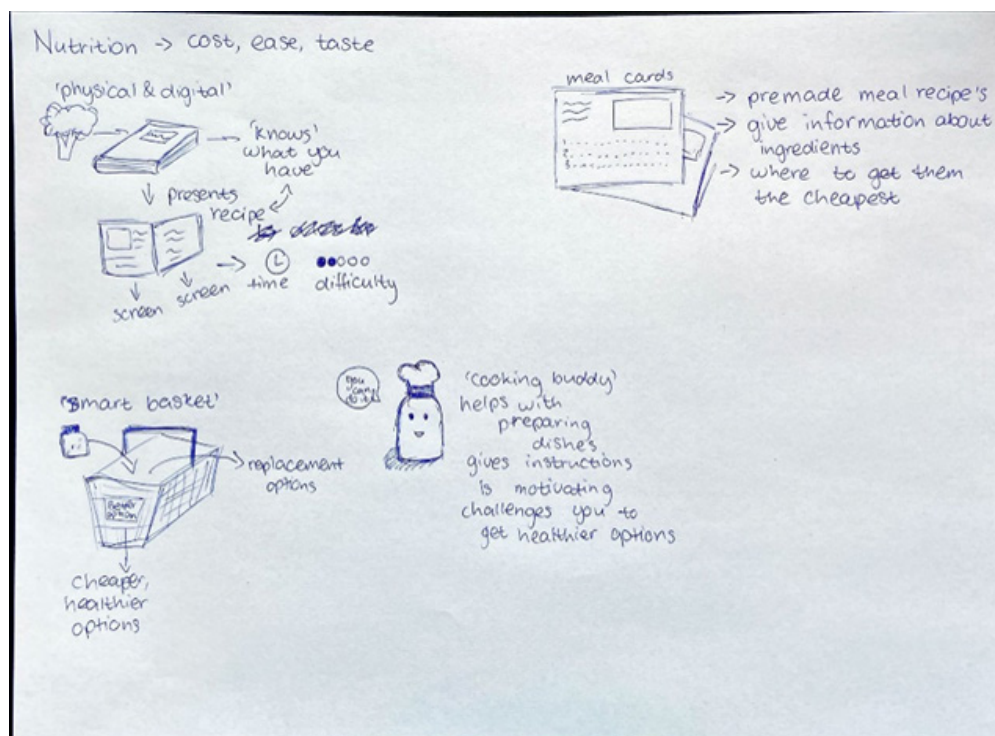 Nutrition -> cost, ease, taste
'physical & digital'
'knows'
what you
have
presents
recipe
time
difficulty
screen
screen
meal cards
1.
2.
3.
-> premade meal recipe's
-> give information about
ingredients
-> where to get them
the cheapest
'smart basket'
replacement
options
cheaper,
healthier
options
you
can
do it
'cooking buddy'
helps with
preparing
dishes
gives instructions
is motivating
challenges you to
get healthier options